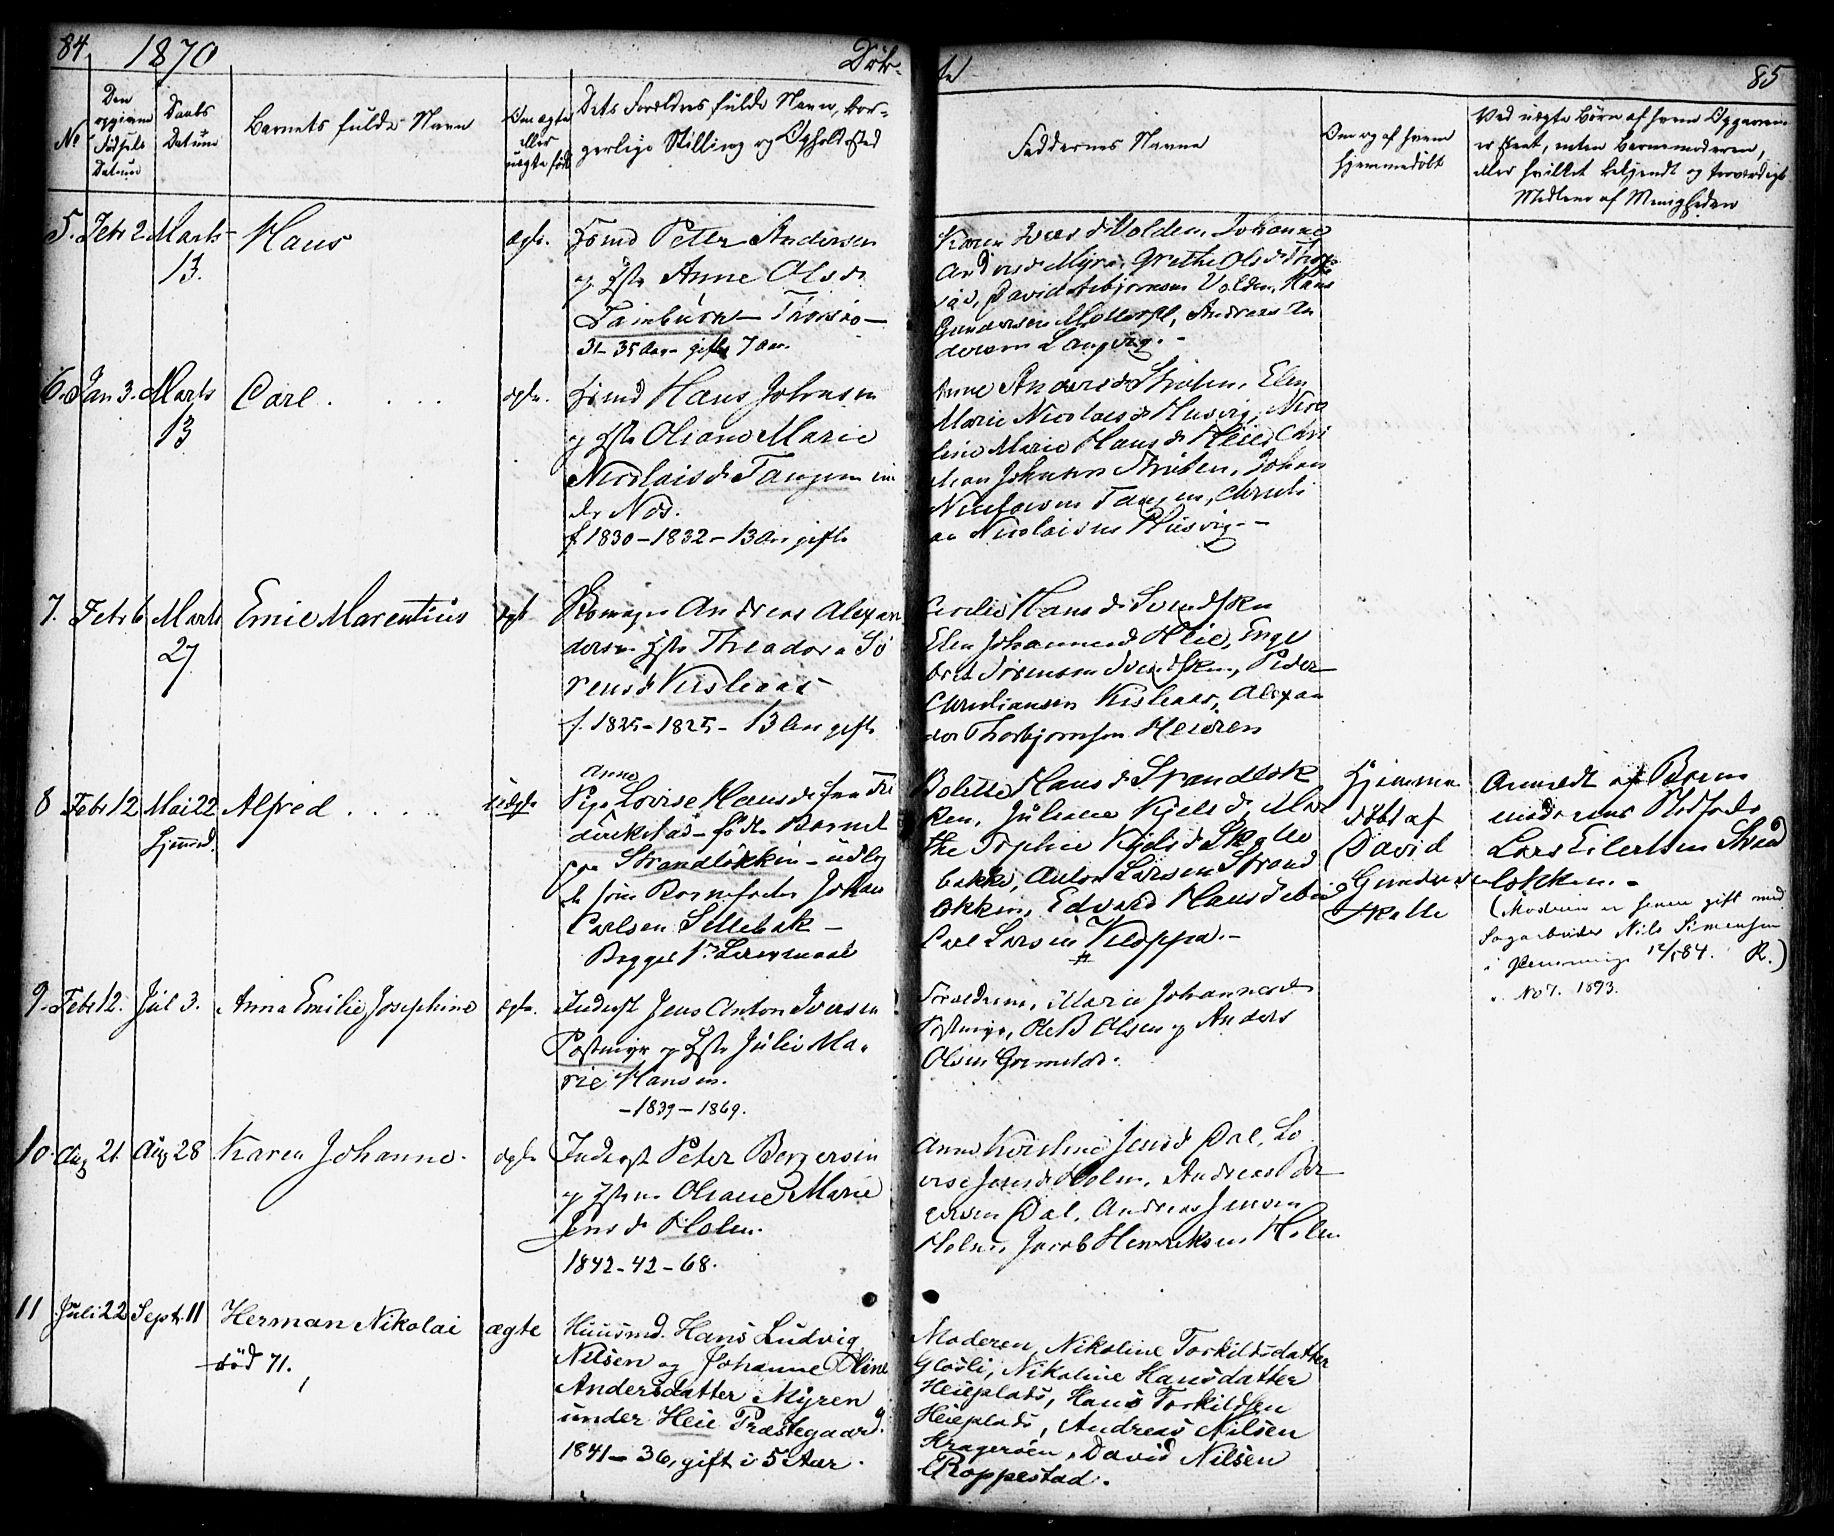 84
1870
Döb-
te
85
No
Den
opgivne
Fødsels
Datum
Daabs
Datum
Barnets fulde Navn
Om ægte
eller
uægte født
Dets Foreldres fulde Navn, bor-
gerlige Stilling og Opholdssted
Faddernes Navne
Om og af hvem
hjemmedøbt
Ved uægte Børn af hvem Opgaven
er skeet, enten Barnemoderen,
eller hvilket bekjendt og troværdigt
Medlem af Menigheden
5. Febr 2 Marts
13.
Hans
ægte.
Peter Andersen
og Hst. Anne Olsdr
31-35 Aar- gifte 7 Aar.
Volden, Johanne
Andersdr Myra, Grethe Olsdr
David Asbjørnsen Volden, Hans
Gundersen Andreas An
dersen Langvig.-
6. Jan 3. Marts
13
Carl. . . . .
ægte.
Hans Johnsen
og Hst. Oliane Marie
Nicolaisdr Tangen un
der Nes.
f 1830-1832- 13 Aar gifte
Anne Andersdr Elen
Marie Nicolaisdr Husvig, Nico
line Marie Hansdr Heie, Chri
stian Johnsen Johan
Tangen, Christi
an Nicolaisen Husvig.-
7. Febr 6 Marts
27
Emil Marentius
ægt
Skomager Andreas Alexan
dersen Hst. Theodora Sö
rensdr Kisleaas
f. 1825-1825- 13 Aar gift
Cecilie Hansdr
Elen Johannesdr Heie, Enge
bret Sørensen Peder
Christiansen Kisleaas, Alexan
der Thorbjørnsen Heieren
8 Febr 12 Mai 22
Hjemmed.
Alfred . . . .
uægte
Anne
Pige Lovise Hansdr fra Fre
drikstad- fødte Barnet
paa Strandløkken- udlag
te som Barnefader Johan
Carlsen Sellebak-
Begges 1ste Leiermaal
Bolette Hansdr Strandløk
ken, Juliane Kjelsdr, Mar
the Sophie Kjelsdr Skjelle
bakke, Anton Larsen Strand
løkken, Edvard Hans
Carl Larsen Kloppa.-
Hjemme
døbt af
David
Gunders
Skjelle
Anmeldt af Barne
moderens Stedfader
Lars Eilertsen Strand
løkken.-
(Moderen er senere gift med
Sagarbeider Nils Simensen
i Glemminge 12/1 84. R.)
No 7. 1893.
9. Febr 12. Jul 3.
Anna Emilie Josephine
ægte.
Inderst Jens Anton Iversen
Postmyr og Hst. Julie Ma-
rie Hansen.
-1839-1869.
Forældrene, Marie Johannesdr
Postmyr, Ole B Olsen og Anders
Olsen Grimstad.
10. Aug 21 Aug 28
Karen Johanne.
ægte
Inderst Peter Bergersen
og Hstru Oliane Marie
Jensdr Holm.
1842-42-68.
Anne Kirstine Jensdr Dal, Lo
vise Jensdr Holm, Andreas Ber
gersen Dal, Andreas Jensen
Holm, Jacob Henriksen Holm
11 Juli 22 Sept. 11
Herman Nikolai
død 71.
ægte
Huusmd. Hans Ludvig
Nilsen og Johanne Oline
Andersdatter Myren
under Heie Præstegaard.
1841-36, gift i 5 Aar.
Moderen, Nikoline Torkildsdatter
Glosli, Nikoline Hansdatter
Heieplads, Hans Torkildsen
Heieplads, Andreas Nilsen
Kragerøen, David Nilsen
Roppestad.